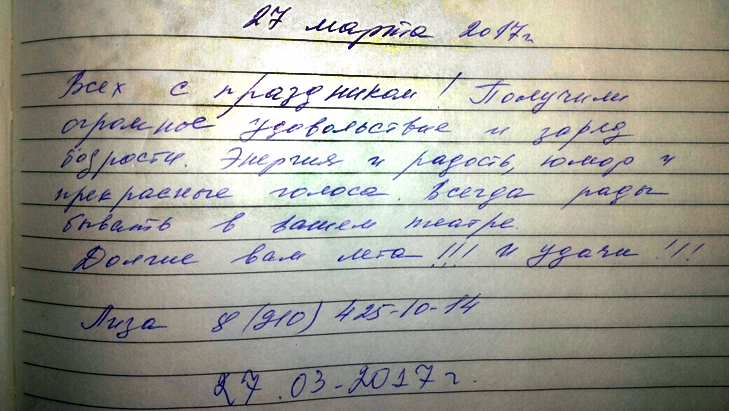 27 марта 2017г
Всех с праздником! Получили
огромное удовольствие и заряд
бодрости. Энергия и радость, юмор и
прекрасные голоса. Всегда рады
бывать в вашем театре.
Долгие вам лета!!! и удачи!!!
Лиза 8(910) 425-10-14
27.03-2017г.